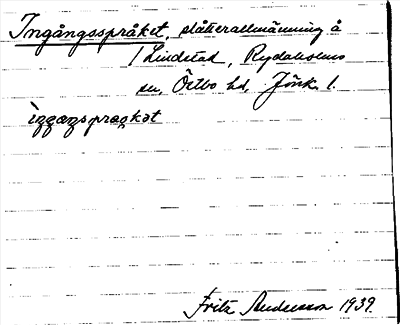 Ingångsspråket, slåtterallmänning å
/ Lindstad, Rydaholms
sn, Östbo hd, Jönk. l.
ìŋgaŋspragkət
Fritz Andersson 1939.